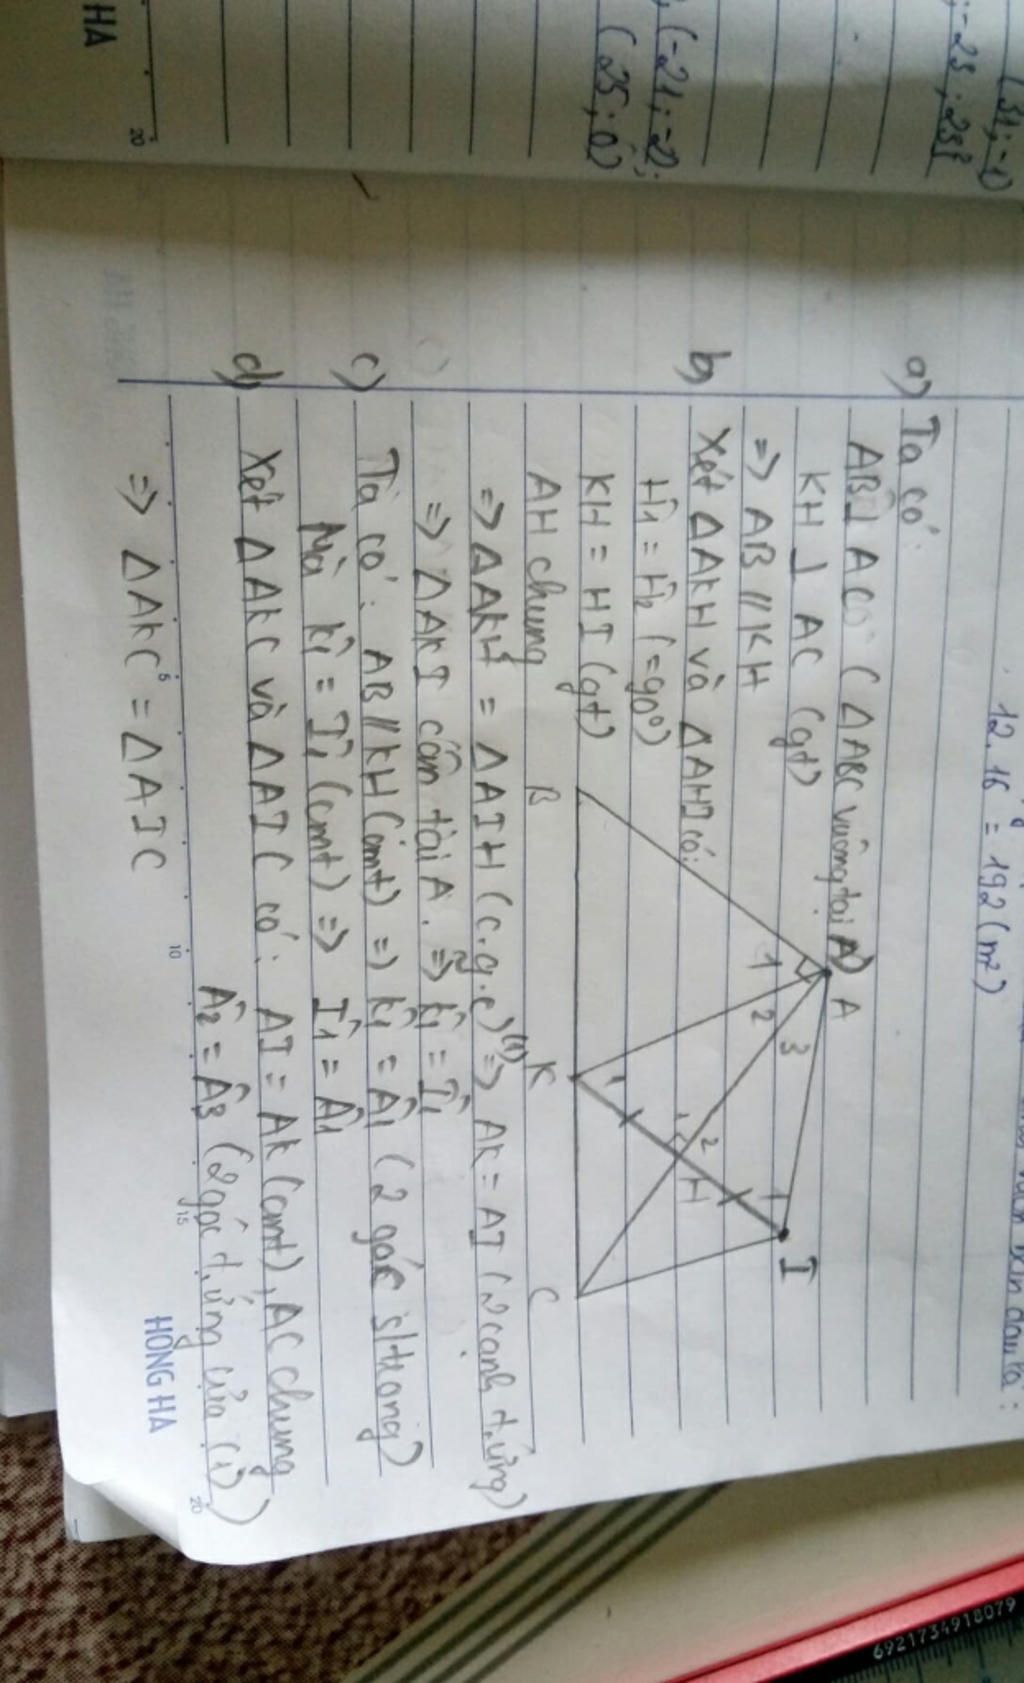 (31; -1)
; -23; 23}
(-21; -2);
(25; 0)
HA
20
12.16 = 192 (m²)
a) Ta có:
AB ⊥ AC (ΔABC vuông tại A)
KH ⊥ AC (gt)
=> AB // KH
b) Xét ΔAKH và ΔAHI có:
Ĥ1 = Ĥ2 (=90°)
KH = HI (gt)
AH chung
=> ΔAKH = ΔAIH (c.g.c) (1) => AK = AI (2 cạnh t.ứng)
=> ΔAKI cân tại A. => K̂1 = Î1
c) Ta có: AB // KH (cmt) => K̂1 = Â1 (2 góc s/trong)
Mà K̂1 = Î1 (cmt) => Î1 = Â1
d) Xét ΔAKC và ΔAIC có: AI = AK (cmt), AC chung
Â2 = Â3 (2 góc t.ứng của (1))
=> ΔAKC = ΔAIC
A
1
2
3
I
1
2
1
H
1
B
K
C
5
10
15
20
HỒNG HÀ
6921734918079